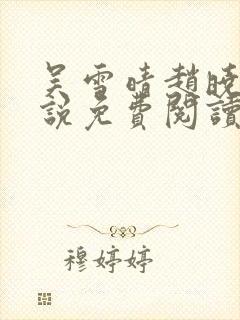 吴雪晴趙曉
說免費閱讀
穆婷婷